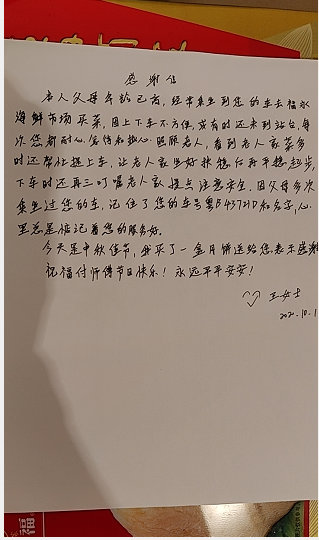 感谢信
老人父母年龄已高，经常乘坐到您的车去福永
海鲜市场买菜，因上下车不方便，或有时还未到站台，每
次您都耐心、宽待和担心照顾老人，看到老人家菜多
时还帮忙提上车，让老人家坐好扶稳后再平稳起步，
下车时还再三叮嘱老人家慢点注意安全。因父母多次
乘坐过您的车，记住了您的车号粤B43721D和名字，心
里总是惦记着您的服务好。
今天是中秋佳节，母买了一盒月饼送给您表示感谢
祝福付师傅节日快乐！永远平平安安！
王女士
202.10.1
福